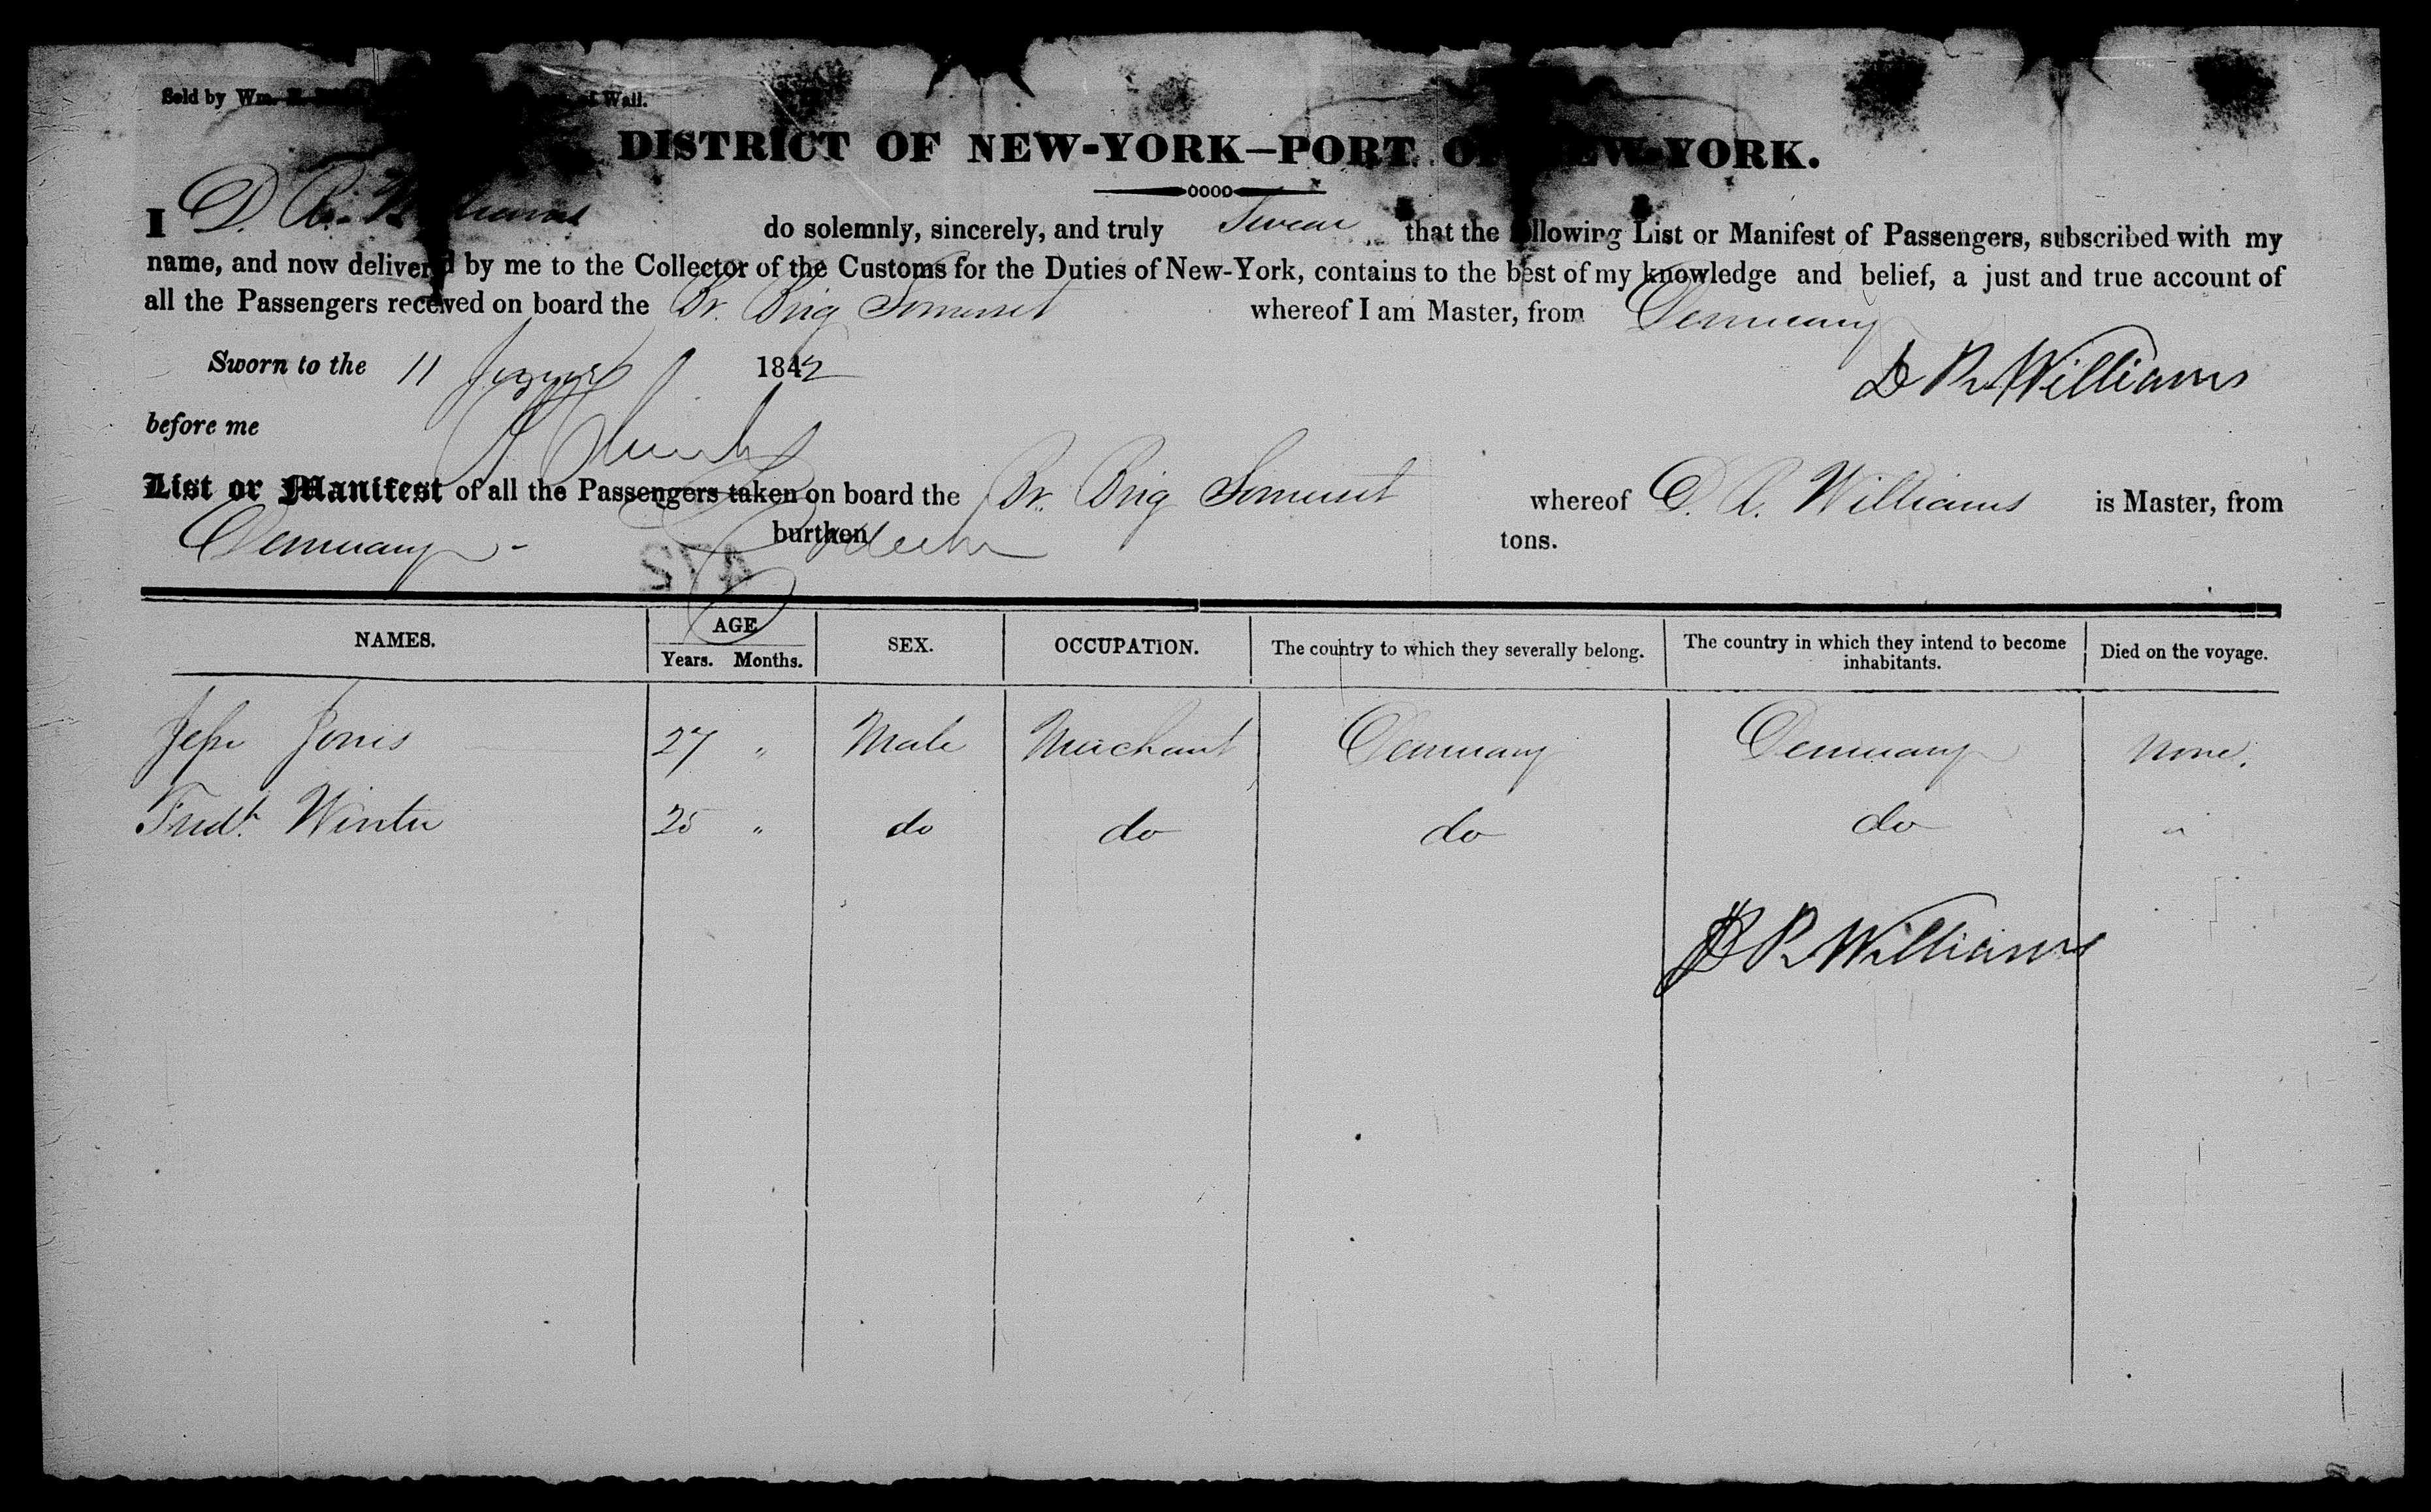 Sold by Wm. of Wall.
DISTRICT OF NEW-YORK—PORT OF NEW-YORK.
I D. R. Williams do solemnly, sincerely, and truly Swear that the following List or Manifest of Passengers, subscribed with my
name, and now delivered by me to the Collector of the Customs for the Duties of New-York, contains to the best of my knowledge and belief, a just and true account of
all the Passengers received on board the Br. Brig Somerset whereof I am Master, from Demerary
Sworn to the 11 1842
D R Williams
before me
List or Manifest of all the Passengers taken on board the Br. Brig Somerset whereof D. R. Williams is Master, from
Demerary burthen tons.
NAMES. AGE Years. Months. SEX. OCCUPATION. The country to which they severally belong. The country in which they intend to become inhabitants. Died on the voyage.
Jesse Jones 27 " Male Merchant Demerary Demerary none.
Fredk. Winter 25 " do do do do "
D R Williams